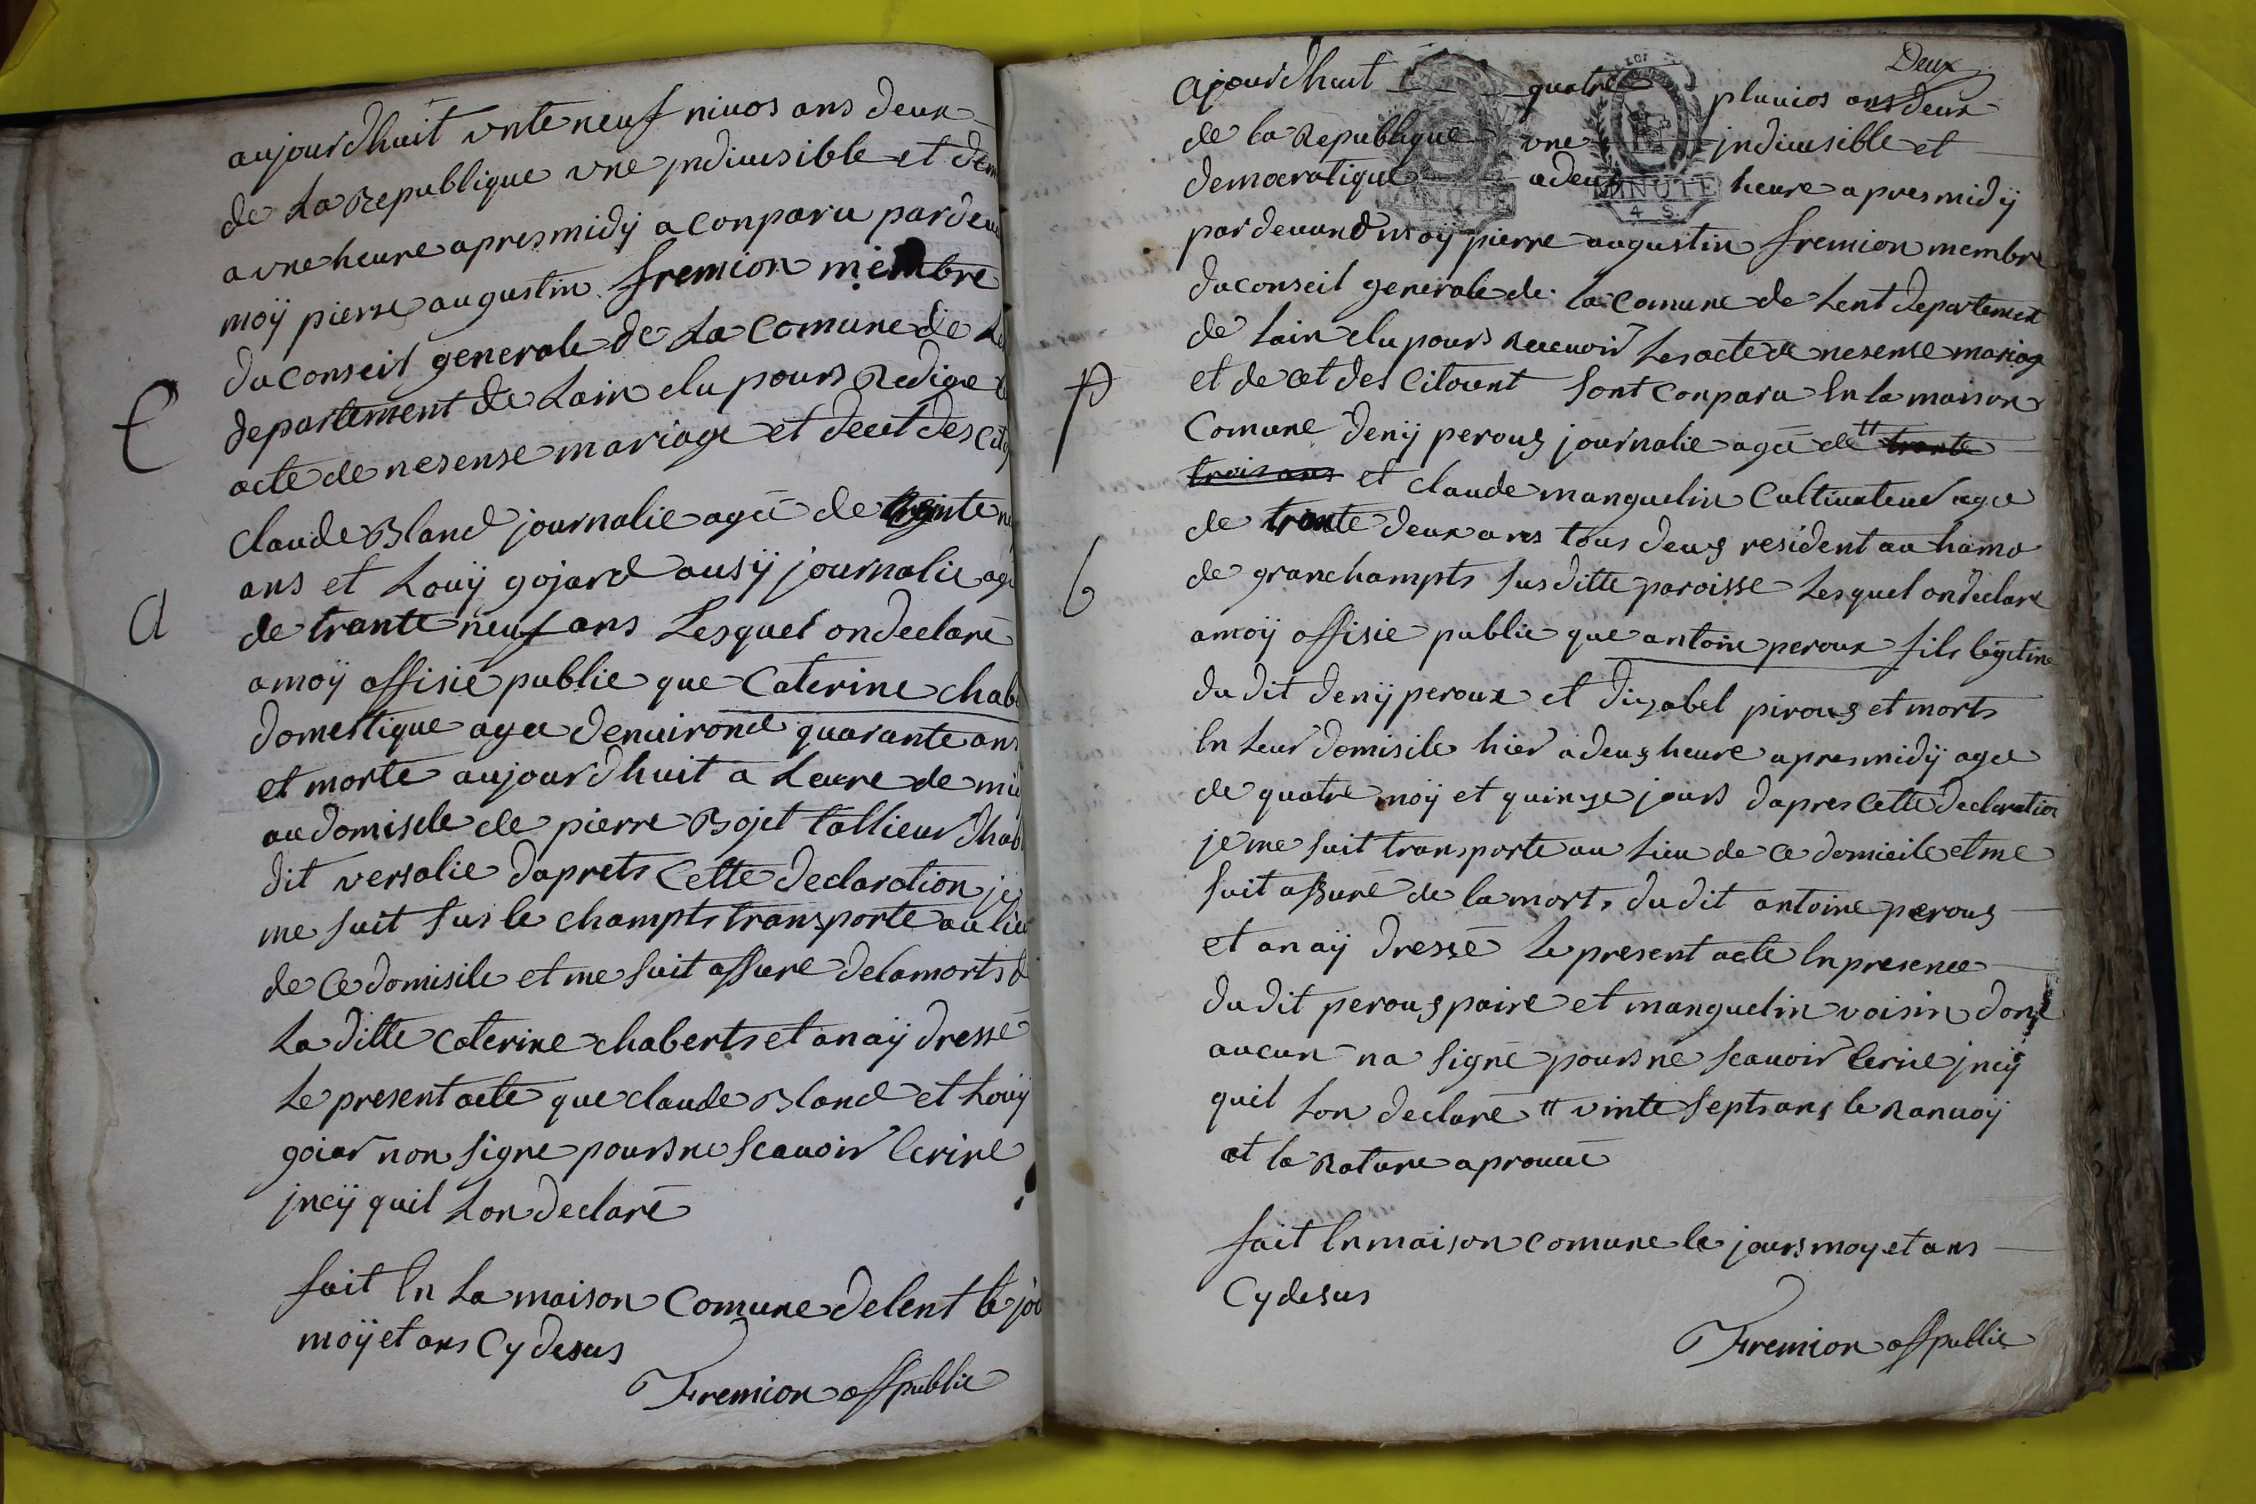 aujourdhuit vnte neuf nivos ans deux
de La Republique vne jndiuisible et dem
a vne heure apres midÿ a conparu pardeu
moÿ pierre augustin fremion membre
du conseil generale de La comune de Le
departement de Lain elu pours Redige
acte de nesense mariage et decet des cito
C
claude Bland journalie agée de trainte ne
ans et Louÿ gojard ausÿ journalie age
a
de trante neuf ans Lesquel on declaré
a moÿ offisié publie que Caterine chab
domestique agee denuirond quarante ans
et morte aujourdhuit a Leure de mid
au domisile de pierre Bojet tallieur dhab
dit versalie daprets Cette declaration je
me suit sus le champts transporte au lieu
de Ce domisile et me suit assure de la morts d
La ditte caterine chaberts et an aÿ dressé
Le present acte que claude Bland et Louÿ
goiar non signe pours ne scauoir Ecrire
jncÿ quil Lon declaré
fait En La maison Comune de lent le jou
moÿ et ans Cy desus
Fremion off publie
Deux
ajourdhuit quatre pluuios ans deux
de la Republique vne jndiuisible et
democratique a deux heure apres midÿ
MINUTE
4 S
par deuand moÿ pierre augustin fremion membre
du conseil generale de la comune de Lent departement
de Lain elu pours Receuoir Les acte de nesense mariage
et de cet des Citouent sont conparu En la maison
p
Comune denÿ perous journalie agée de tt trante
trois ans et claude manguelin Cultiuateur agee
de trante deux ans tous deus resident au hamo
de granchampts susditte paroisse Lesquel on declaré
6
a moÿ offisie publie que antoine peroux fils legitime
du dit denÿ peroux et dizabel pirous et morts
En Leur domisile hier a deus heure apres midÿ agee
de quatre moÿ et quinze jours dapres Cette declaration
je me suit transporte au Lieu de Ce domicile et me
suit assuré de la morts du dit antoine perous
et an aÿ dressé Le present acte En presence
du dit perous paire et manguelin voisin dont
aucun na signé pours ne scauoir Ecrire jncÿ
quil Lon declaré tt vinte septs ans le Ranuoÿ
et la Rature aprouué
fait En maison comune le jours moy et ans
Cy desus
Fremion off publie